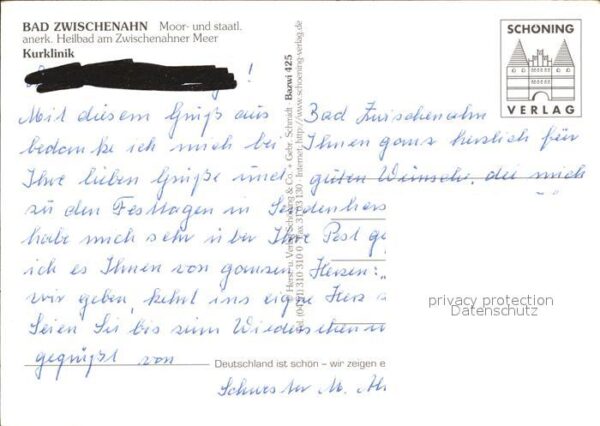 BAD ZWISCHENAHN Moor- und staatl.
anerk. Heilbad am Zwischenahner Meer
Kurklinik
SCHÖNING
VERLAG
!
Mit diesem Gruß aus Bad Zwischenahn
bedanke ich mich bei Ihnen ganz herzlich für
Ihre lieben Grüße und guten Wünsche, die mich
zu den Festtagen in
habe mich sehr über Ihre Post
ich es Ihnen von ganzem Herzen: „
wir geben, kehrt ins eigne Herz
Seien Sie bis zum Wiedersehen
gegrüßt von
Schwester M.
Deutschland ist schön – wir zeigen e
Herst. u. Verlag Schöning & Co. + Gebr. Schmidt Bazwi 425
Tel. (0451) 310 310 Fax 31 03 130 · Internet: http://www.schoening-verlag.de
privacy protection
Datenschutz